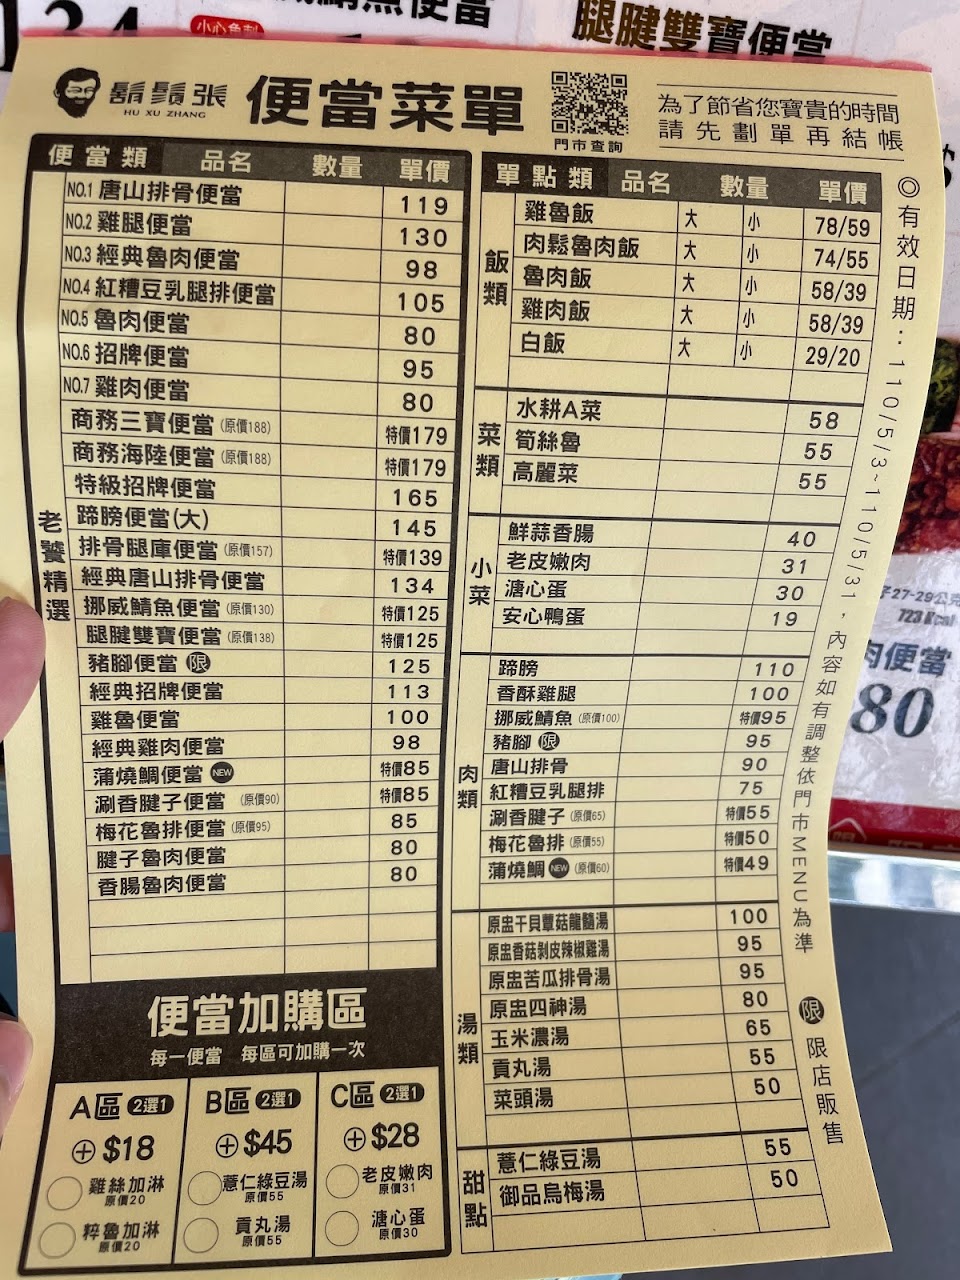 腿腱雙寶便當
小心魚刺
鬍鬚張
HU XU ZHANG
便當菜單
門市查詢
為了節省您寶貴的時間
請先劃單再結帳
便當類 品名 數量 單價
老饕精選
NO.1 唐山排骨便當 119
NO.2 雞腿便當 130
NO.3 經典魯肉便當 98
NO.4 紅糟豆乳腿排便當 105
NO.5 魯肉便當 80
NO.6 招牌便當 95
NO.7 雞肉便當 80
商務三寶便當 (原價188) 特價179
商務海陸便當 (原價188) 特價179
特級招牌便當 165
蹄膀便當(大) 145
排骨腿庫便當 (原價157) 特價139
經典唐山排骨便當 134
挪威鯖魚便當 (原價130) 特價125
腿腱雙寶便當 (原價138) 特價125
豬腳便當 限 125
經典招牌便當 113
雞魯便當 100
經典雞肉便當 98
蒲燒鯛便當 NEW 特價85
涮香腱子便當 (原價90) 特價85
梅花魯排便當 (原價95) 85
腱子魯肉便當 80
香腸魯肉便當 80
便當加購區
每一便當 每區可加購一次
A區 2選1
+$18
雞絲加淋
原價20
粹魯加淋
原價20
B區 2選1
+$45
薏仁綠豆湯
原價55
貢丸湯
原價55
C區 2選1
+$28
老皮嫩肉
原價31
溏心蛋
原價30
單點類 品名 數量 單價
飯類
雞魯飯 大 小 78/59
肉鬆魯肉飯 大 小 74/55
魯肉飯 大 小 58/39
雞肉飯 大 小 58/39
白飯 大 小 29/20
菜類
水耕A菜 58
筍絲魯 55
高麗菜 55
小菜
鮮蒜香腸 40
老皮嫩肉 31
溏心蛋 30
安心鴨蛋 19
肉類
蹄膀 110
香酥雞腿 100
挪威鯖魚 (原價100) 特價95
豬腳 限 95
唐山排骨 90
紅糟豆乳腿排 75
涮香腱子 (原價65) 特價55
梅花魯排 (原價55) 特價50
蒲燒鯛 NEW (原價60) 特價49
湯類
原盅干貝蕈菇龍髓湯 100
原盅香菇剝皮辣椒雞湯 95
原盅苦瓜排骨湯 95
原盅四神湯 80
玉米濃湯 65
貢丸湯 55
菜頭湯 50
甜點
薏仁綠豆湯 55
御品烏梅湯 50
◎有效日期：110/5/3~110/5/31，內容如有調整依門市MENU為準
限 限店販售
27-29公克
723 Kcal
肉便當
80